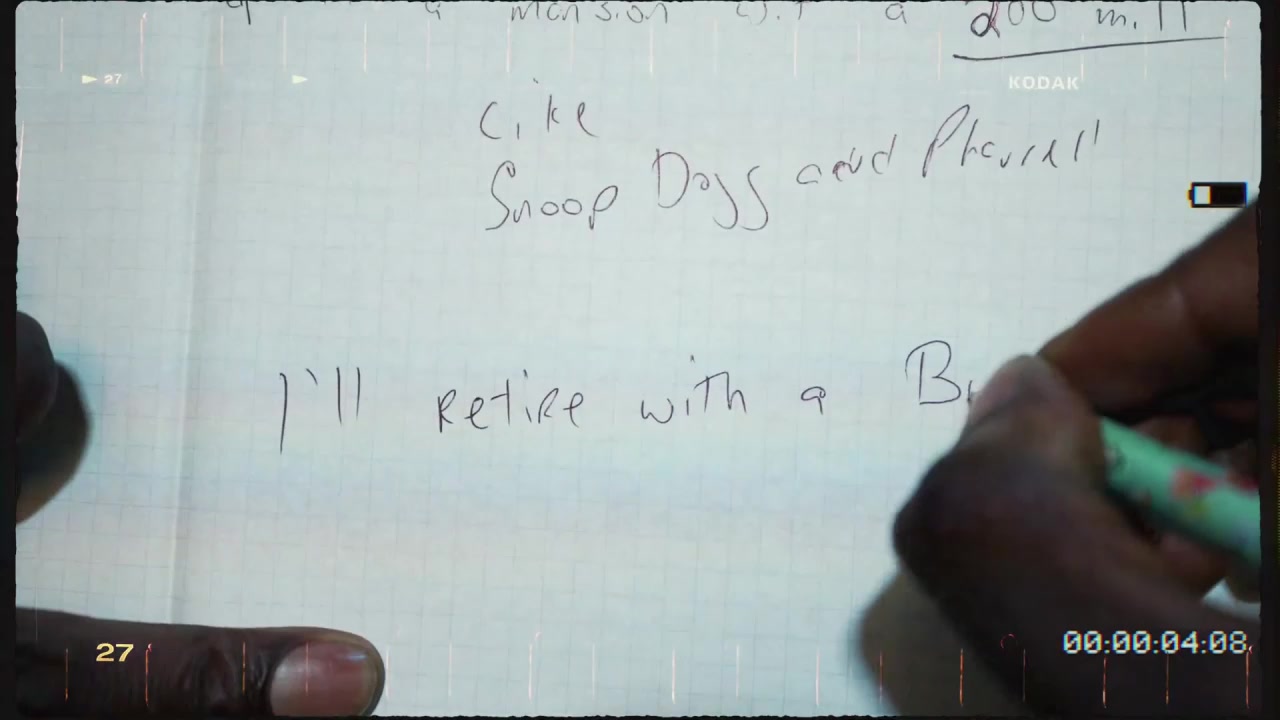 a mansion w.t a 200 mill
KODAK
▶ 27
Like
Snoop Dogg and Pharrell
I'll retire with a B
27
00:00:04:08